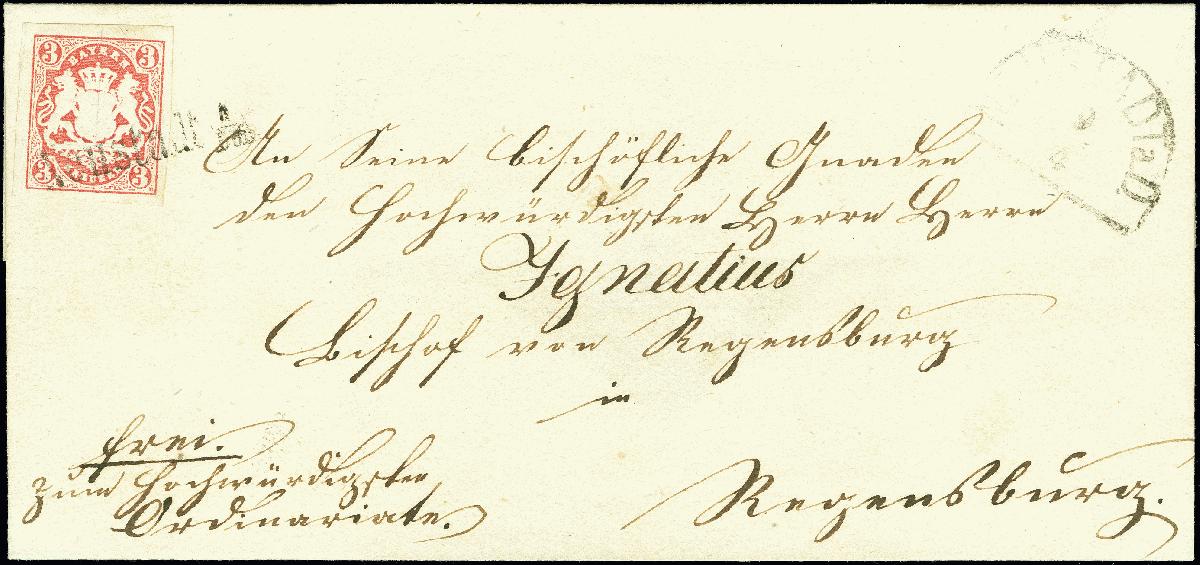 3 BAYERN 3
3 3
An Seine bischöfliche Gnaden
den Hochwürdigsten Herrn Herrn
Ignatius
Bischof von Regensburg
in
Regensburg.
frei.
zum Hochwürdigsten
Ordinariate.